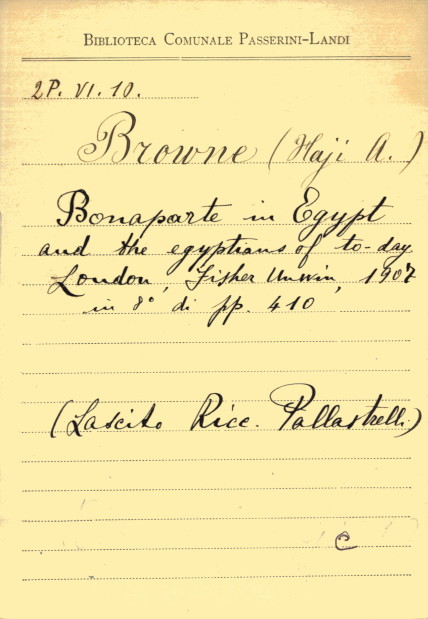 Biblioteca Comunale Passerini-Landi
2P. VI. 10.
Browne (Haji A.)
Bonaparte in Egypt
and the egyptians of to-day
London, Fisher Unwin, 1907
in 8° di pp. 410
(Lascito Ricc. Pallastrelli)
C